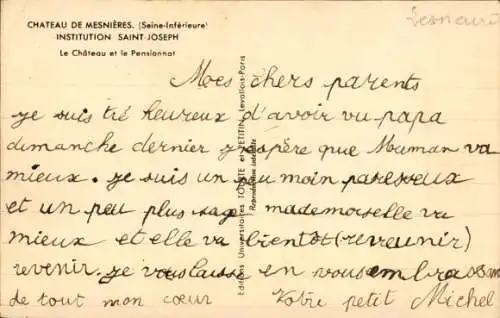 CHATEAU DE MESNIÈRES. (Seine-Inférieure)
INSTITUTION SAINT-JOSEPH
Le Château et le Pensionnat
Mes chers parents
je suis tré heureux d'avoir vu papa
dimanche dernier j'espère que Maman va
mieux. je suis un peu moin paresseux
et un peu plus sage mademoiselle va
mieux et elle va bientôt (reveunir)
revenir. je vous laisse en vous embrassant
de tout mon cœur Votre petit Michel
Editions Universitaires TOURTE et PETITIN, Levallois-Paris
Reproduction interdite